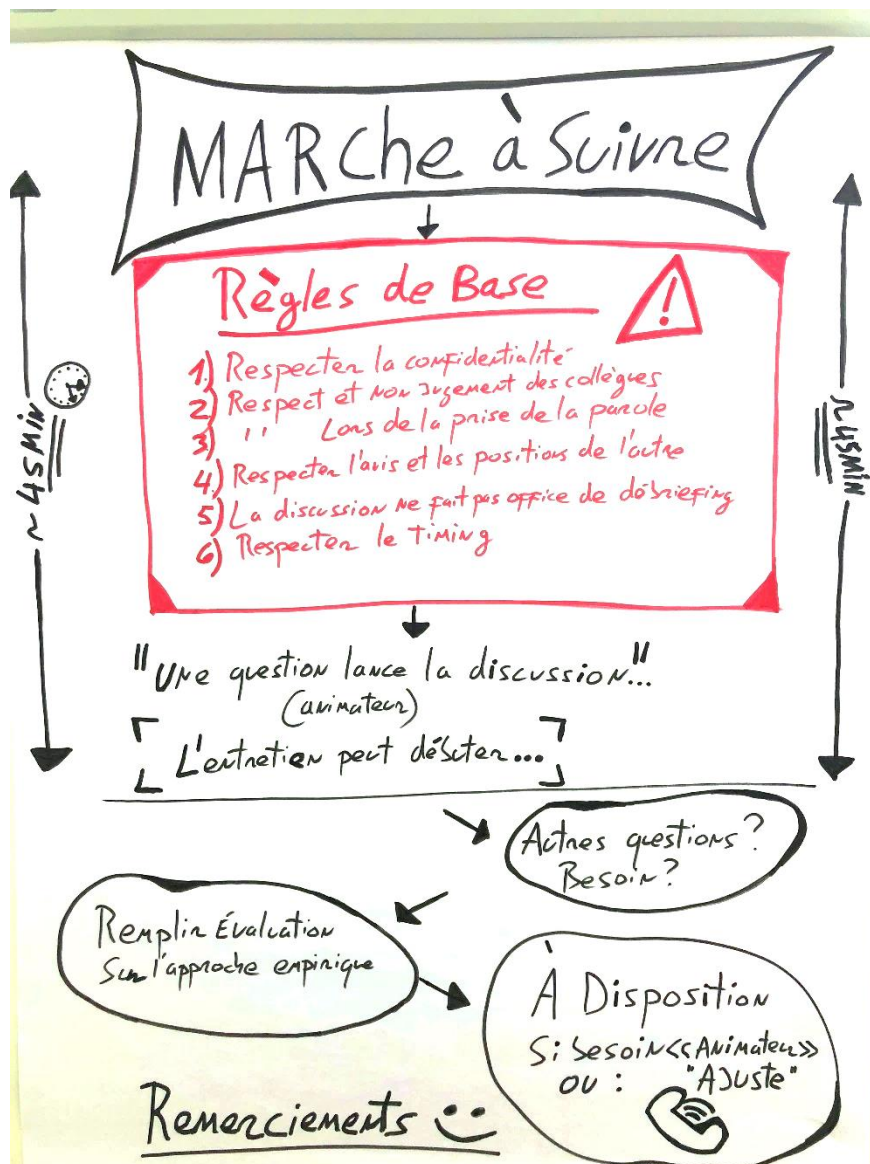 MARche à Suivre
Règles de Base
1) Respecter la confidentialité
2) Respect et non jugement des collègues
3) '' Lors de la prise de la parole
4) Respecter l'avis et les positions de l'autre
5) La discussion ne fait pas office de débriefing
6) Respecter le Timing
~45MIN
~45MIN
"Une question lance la discussion..."
(animateur)
L'entretien peut débuter...
Autres questions?
Besoin?
Remplir Évaluation
Sur l'approche empirique
À Disposition
Si besoin <<Animateur>>
ou : "AJuste"
Remerciements